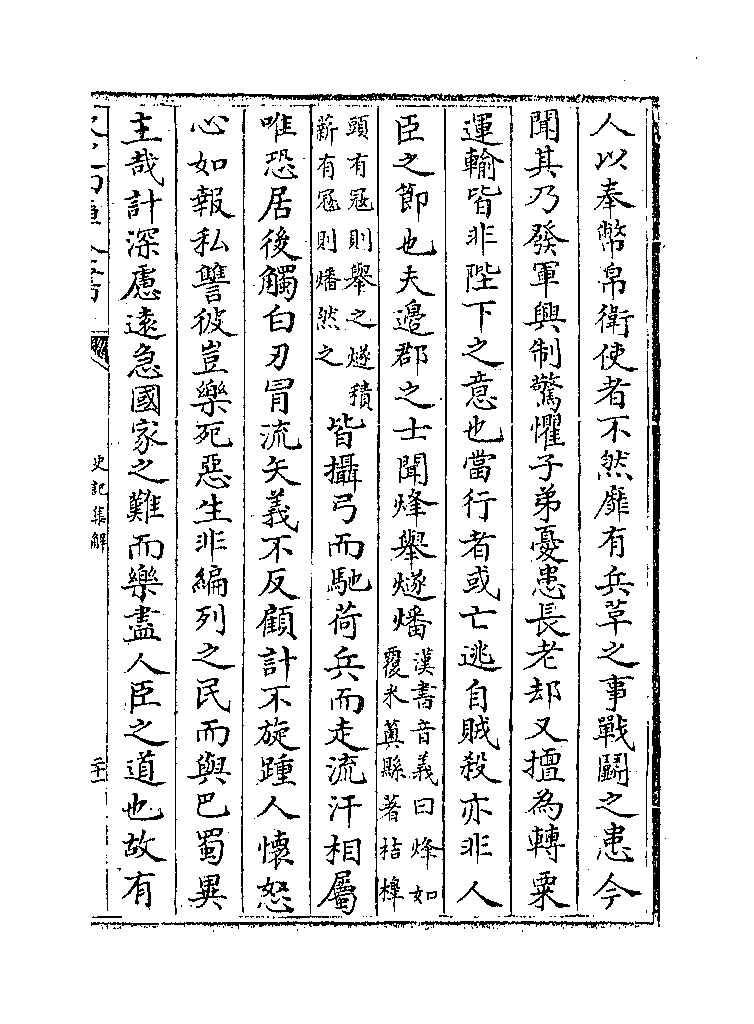 人以奉幣帛衛使者不然靡有兵革之事戰鬬之患今
聞其乃發軍興制驚懼子弟憂患長老郤又擅為轉粟
運輸皆非陛下之意也當行者或亡逃自賊殺亦非人
臣之節也夫邊郡之士聞烽舉燧燔
漢書音義曰烽如
覆米䉛縣著桔橰
頭有冦則舉之燧積
薪有冦則燔然之
皆攝弓而馳荷兵而走流汗相屬
唯恐居後觸白刃冒流矢義不反顧計不旋踵人懷怒
心如報私讐彼豈樂死惡生非編列之民而與巴蜀異
主哉計深慮遠急國家之難而樂盡人臣之道也故有
史記集解